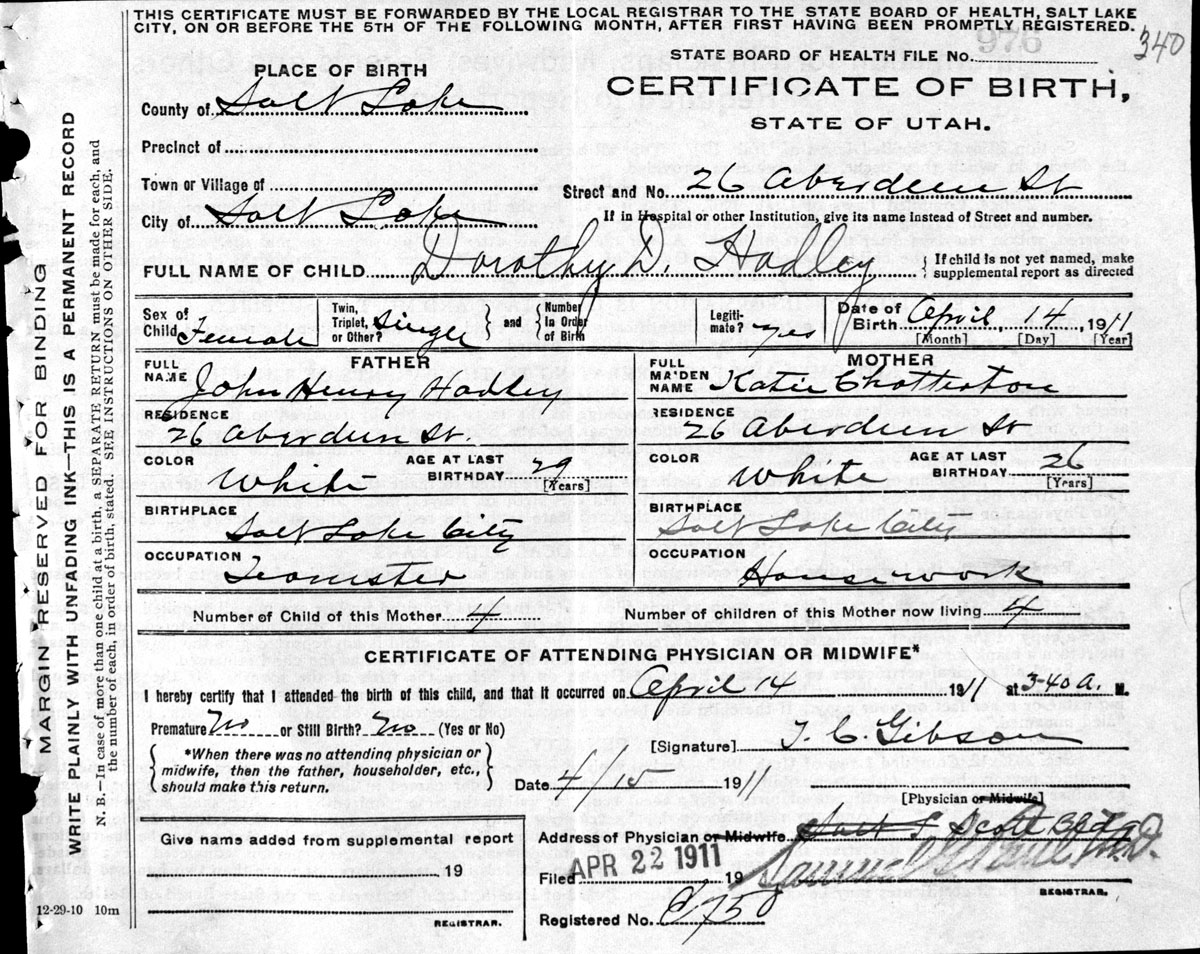 THIS CERTIFICATE MUST BE FORWARDED BY THE LOCAL REGISTRAR TO THE STATE BOARD OF HEALTH, SALT LAKE
CITY, ON OR BEFORE THE 5TH OF THE FOLLOWING MONTH, AFTER FIRST HAVING BEEN PROMPTLY REGISTERED.
340
STATE BOARD OF HEALTH FILE No. 976
PLACE OF BIRTH
CERTIFICATE OF BIRTH,
STATE OF UTAH.
County of Salt Lake
Precinct of
Town or Village of
Street and No. 26 Aberdeen St
City of Salt Lake
If in Hospital or other Institution, give its name instead of Street and number.
FULL NAME OF CHILD Dorothy D. Hadley
If child is not yet named, make
supplemental report as directed
Sex of
Child Female
Twin,
Triplet,
or Other? Singel
and
Number
In Order
of Birth
Legiti-
mate? yes
Date of
Birth April, 14, 1911
[Month] [Day] [Year]
FATHER
FULL
NAME John Henry Hadley
RESIDENCE
26 Aberdeen St.
COLOR White AGE AT LAST
BIRTHDAY 29
[Years]
BIRTHPLACE
Salt Lake City
OCCUPATION
Teamster
MOTHER
FULL
MAIDEN
NAME Katie Chatterton
RESIDENCE
26 Aberdeen St
COLOR White AGE AT LAST
BIRTHDAY 26
(Years)
BIRTHPLACE
Salt Lake City
OCCUPATION
Housework
Number of Child of this Mother 4 Number of children of this Mother now living 4
CERTIFICATE OF ATTENDING PHYSICIAN OR MIDWIFE*
I hereby certify that I attended the birth of this child, and that it occurred on April 14 1911 at 3-40 a. M.
Premature No or Still Birth? No (Yes or No)
*When there was no attending physician or
midwife, then the father, householder, etc.,
should make this return.
[Signature] T. C. Gibson
Date 4/15 1911
[Physician or Midwife]
Give name added from supplemental report
19
REGISTRAR.
12-29-10 10m
Address of Physician or Midwife Salt L Scott Bldg
Filed APR 22 1911 19
REGISTRAR.
Registered No. 975
MARGIN RESERVED FOR BINDING
WRITE PLAINLY WITH UNFADING INK—THIS IS A PERMANENT RECORD
N. B.—In case of more than one child at a birth, a SEPARATE RETURN must be made for each, and
the number of each, in order of birth, stated. SEE INSTRUCTIONS ON OTHER SIDE.